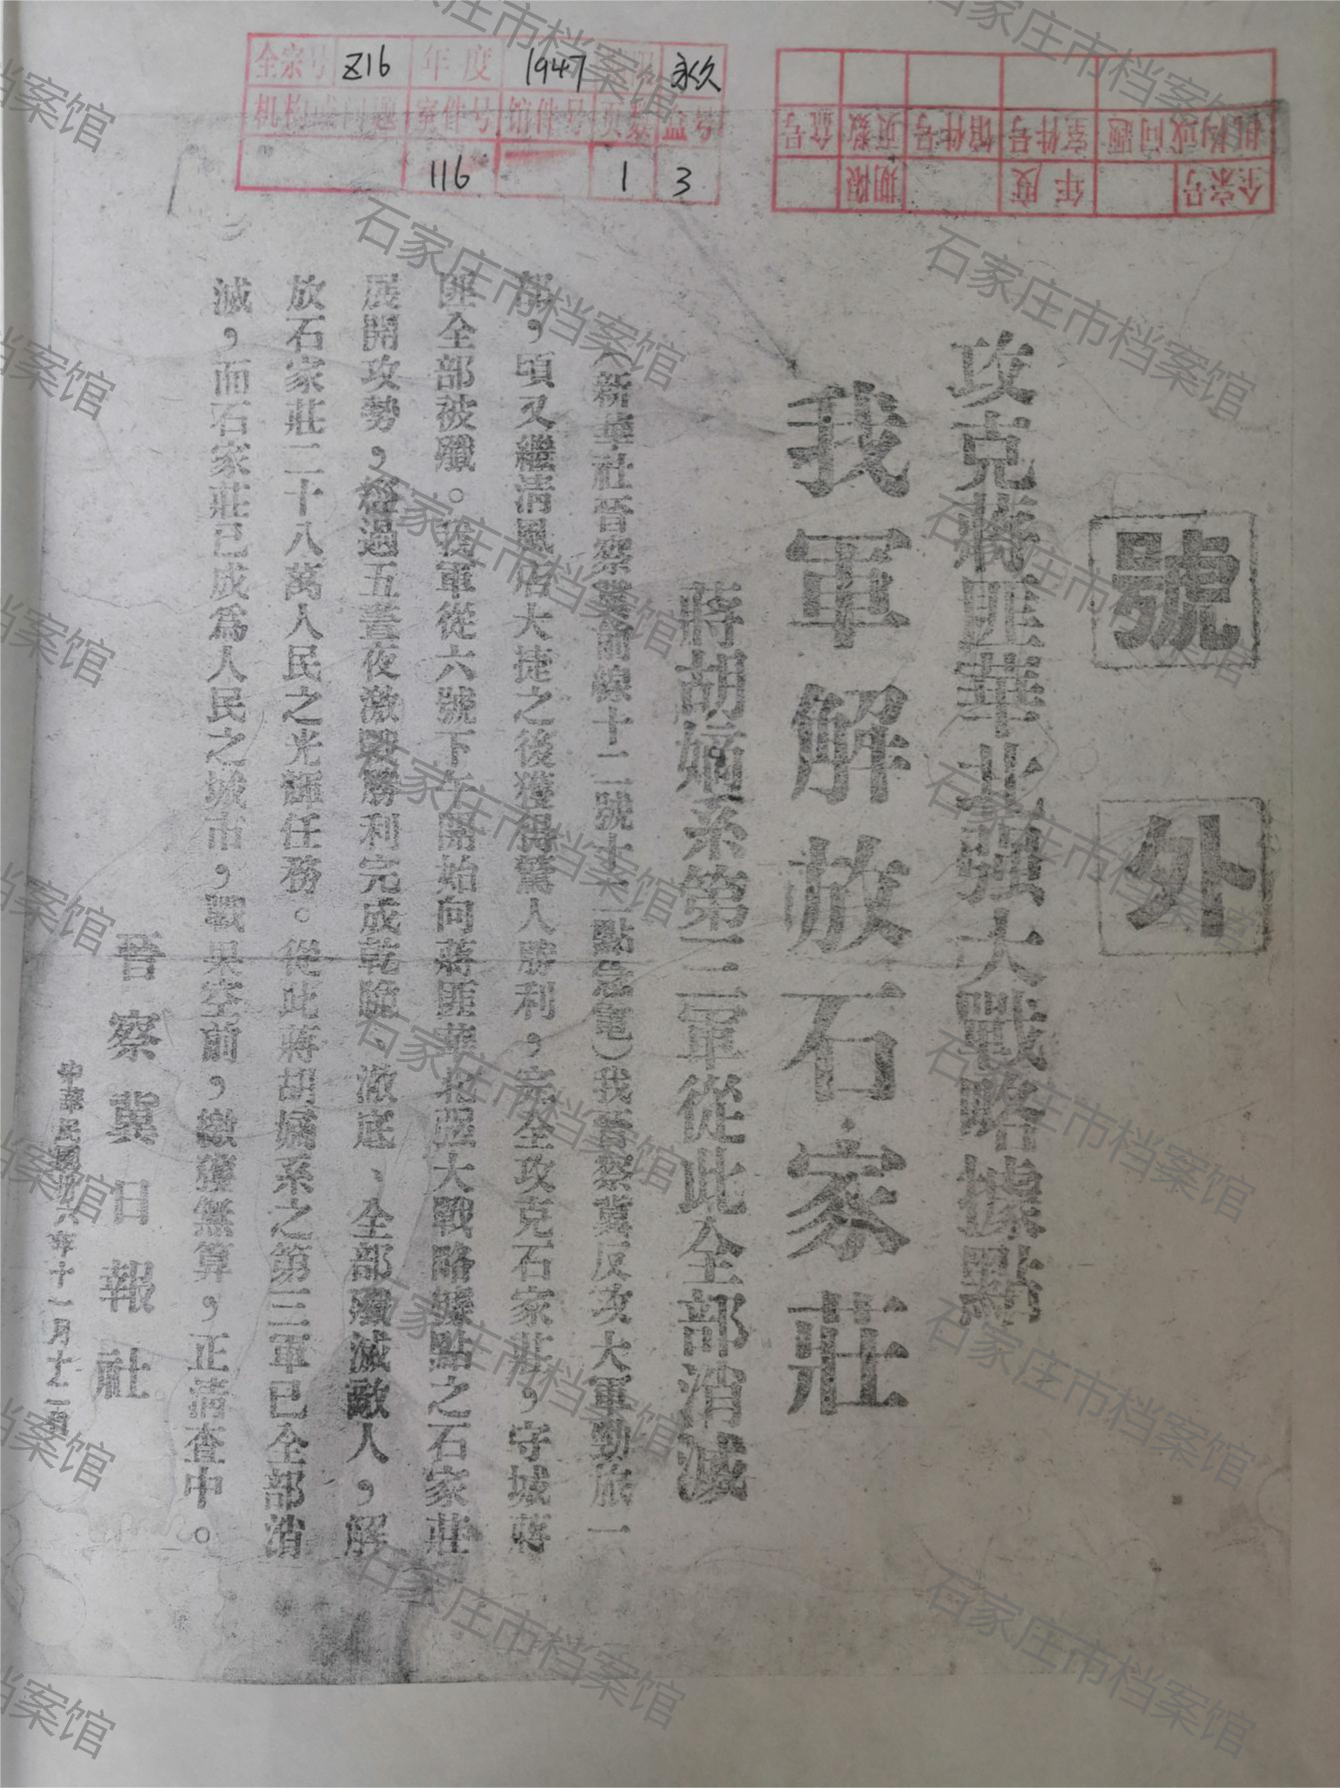 全宗号 Z16 年度 1947 永久
机构或问题 室件号 馆件号 页数 盒号
116 1 3
机构或问题 室件号 馆件号 页数 盒号
全宗号 年度 期限
號外
攻克蔣匪華北强大戰略據點
我軍解放石家莊
蔣胡嫡系第三軍從此全部消滅
（新華社晋察冀前線十二號十二點急電）我晋察冀反攻大軍勁旅一
部，頃又繼清風店大捷之後獲得驚人勝利，完全攻克石家莊，守城蔣
匪全部被殲。我軍從六號下午開始向蔣匪華北强大戰略據點之石家莊
展開攻勢，經過五晝夜激戰勝利完成乾脆、澈底、全部殲滅敵人，解
放石家莊二十八萬人民之光輝任務。從此蔣胡嫡系之第三軍已全部消
滅，而石家莊已成爲人民之城市，戰果空前，繳獲無算，正清查中。
晋察冀日報社
中華民國卅六年十一月十二日
石家庄市档案馆